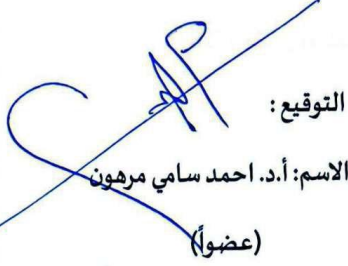 التوقيع:
الاسم: أ.د. احمد سامي مرهون
(عضواً)